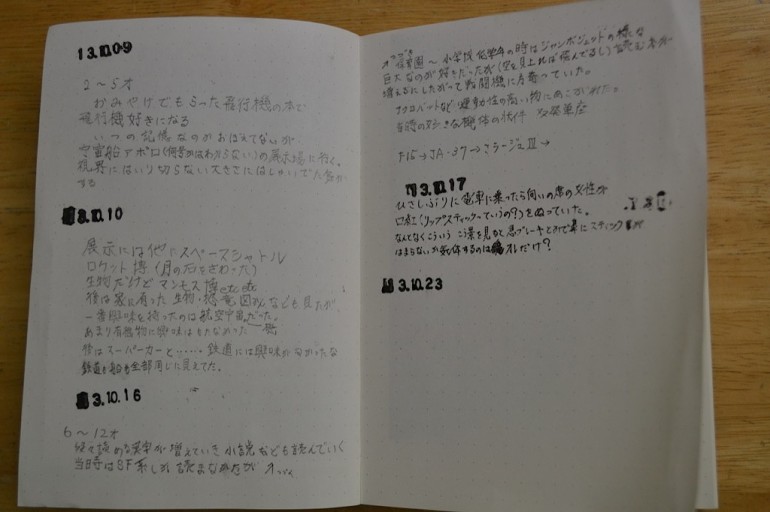 13.10.09
2～5才
おみやげでもらった飛行機の本で
飛行機好きになる
いつの記憶なのかおぼえてないが
宇宙船アポロ(何号かはわからない)の展示場に行く。
視界にはいり切らない大きさにはしゃいでた気が
する
3.10.10
展示には他にスペースシャトル
ロケット博(月の石をさわった)
生物だけど マンモス博etc etc
後は家に有った 生物・恐竜図かんなども見たが
一番興味を持ったのは航空宇宙だった。
あまり有機物に興味はもたなかった
後はスーパーカーと……鉄道には興味がなかったな
鉄道も船も全部同じに見えてた。
3.10.16
6～12才
続々読める漢字が増えていき 小説なども読んでいく
当時はSF系しか読まなかったが
保育園～小学校低学年の時はジャンボジェットの様な
巨大なのが好きだったが(空を見上れば飛んでるし) 読む本が
増えるにしたがって戦闘機に片寄っていた。
アクロバットなど運動性の高い物にあこがれた。
当時の好きな機体の条件 単座
F15→JA-37→ミラージュIII→
3.10.17
ひさしぶりに電車に乗ったら向いの席の女性が
口紅(リップスティックっていうの?)をぬっていた。
なんとなくこういう光景を見ると急ブレーキとかで鼻にスティックが
はまらないか気体するのはオレだけ?
3.10.23